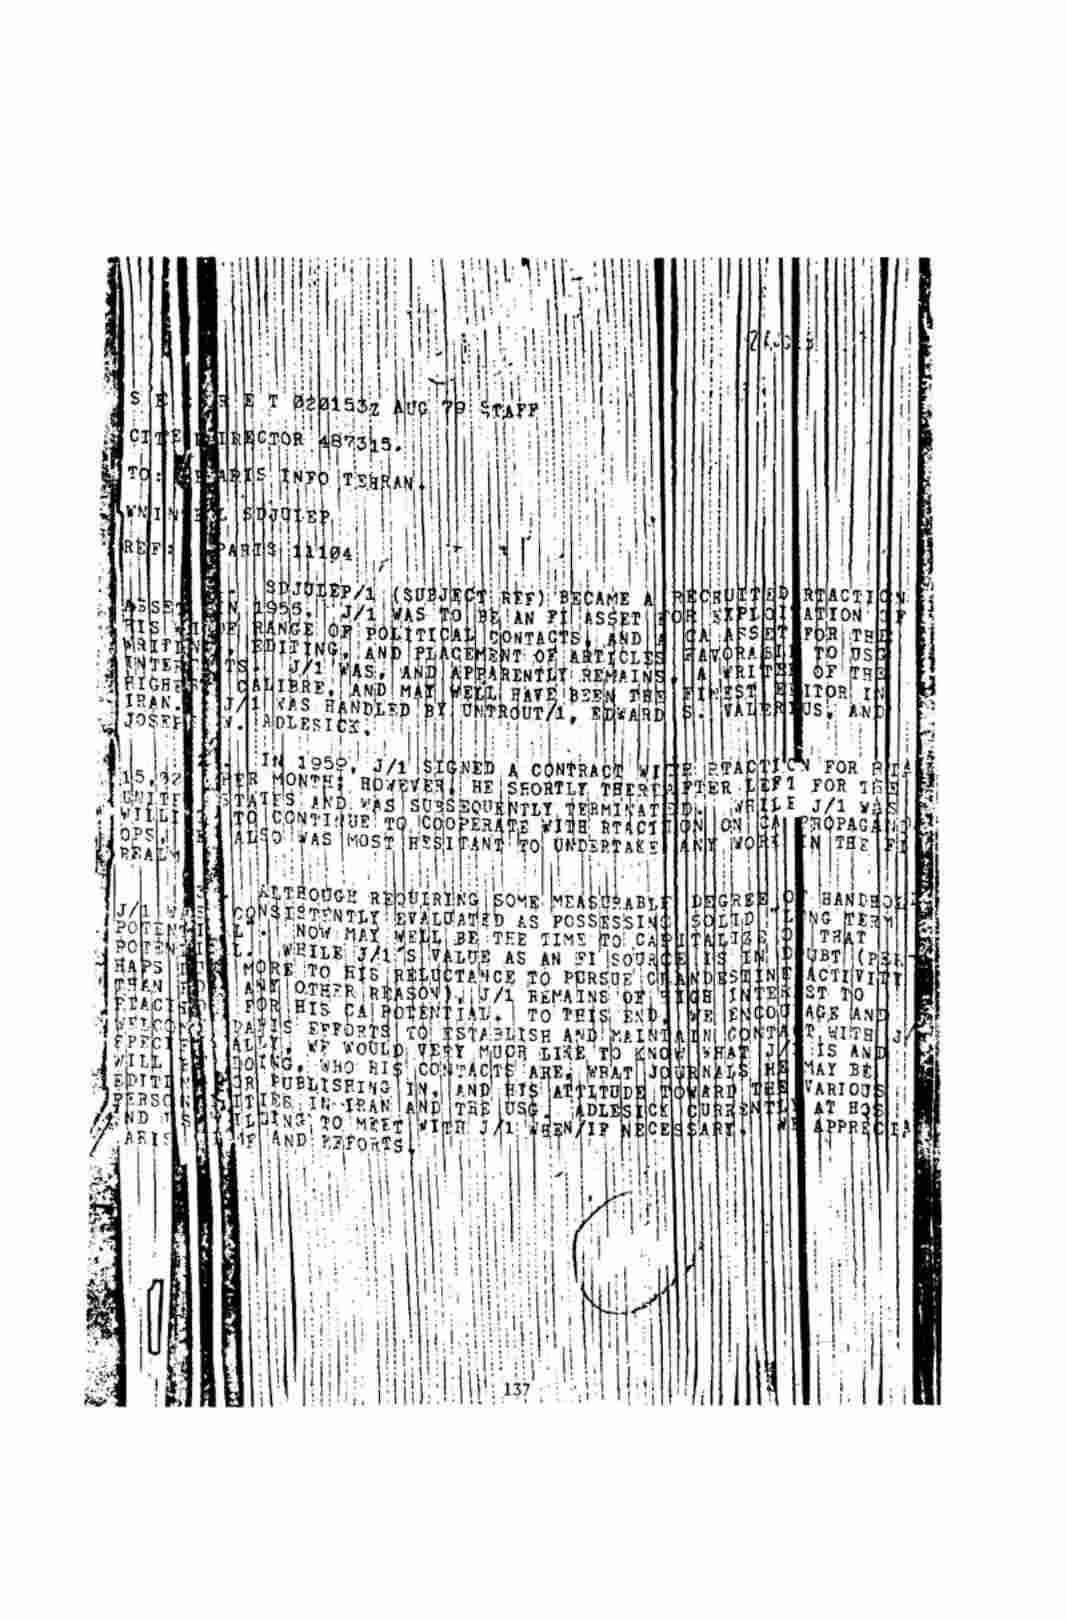 S E C R E T 020153Z AUG 79 STAFF
CITE DIRECTOR 487315.
TO: PARIS INFO TEHRAN.
WNINTEL SDJULEP
REF: PARIS 11104
. SDJULEP/1 (SUBJECT REF) BECAME A RECRUITED RTACTION
ASSET IN J/1 WAS TO BE AN FI ASSET FOR EXPLOITATION OF
HIS WIDE RANGE OF POLITICAL CONTACTS, AND A CA ASSET FOR THE
WRITING, EDITING, AND PLACEMENT OF ARTICLES FAVORABLE TO USG
INTERESTS. J/1 WAS, AND APPARENTLY REMAINS, A WRITER OF THE
HIGHEST CALIBRE, AND MAY WELL HAVE BEEN THE FINEST EDITOR IN
IRAN. J/1 WAS HANDLED BY UNTROUT/1, EDWARD S. AND
JOSEPH W. ADLESICK.
2. IN 1959, J/1 SIGNED A CONTRACT WITH RTACTION FOR
PER MONTH; HOWEVER, HE SHORTLY THEREAFTER LEFT FOR THE
UNITED STATES AND WAS SUBSEQUENTLY TERMINATED. WHILE J/1 WAS
WILLING TO CONTINUE TO COOPERATE WITH RTACTION ON CA PROPAGAND
OPS, HE ALSO WAS MOST HESITANT TO UNDERTAKE ANY WORK IN THE FI
REALM
. ALTHOUGH REQUIRING SOME MEASURABLE DEGREE OF
J/1 WAS CONSISTENTLY EVALUATED AS POSSESSING SOLID LONG TERM
POTENTIAL. NOW MAY WELL BE THE TIME TO CAPITALIZE ON THAT
POTENTIAL. WHILE J/1'S VALUE AS AN FI SOURCE IS IN DOUBT (PER-
HAPS DUE MORE TO HIS RELUCTANCE TO PURSUE CLANDESTINE ACTIVITY
THAN FOR ANY OTHER REASON), J/1 REMAINS OF HIGH INTEREST TO
RTACTION FOR HIS CA POTENTIAL. TO THIS END, WE ENCOURAGE AND
WELCOME PARIS EFFORTS TO ESTABLISH AND MAINTAIN CONTACT WITH J/
SPECIFICALLY, WE WOULD VERY MUCH LIKE TO KNOW WHAT J/1 IS AND
WILL BE DOING, WHO HIS CONTACTS ARE, WHAT JOURNALS HE MAY BE
EDITING OR PUBLISHING IN, AND HIS ATTITUDE TOWARD THE VARIOUS
PERSONALITIES IN IRAN AND THE USG. ADLESICK CURRENTLY AT HQS
AND IS WILLING TO MEET WITH J/1 WHEN/IF NECESSARY. WE APPRECIA
PARIS TIME AND EFFORTS.
137